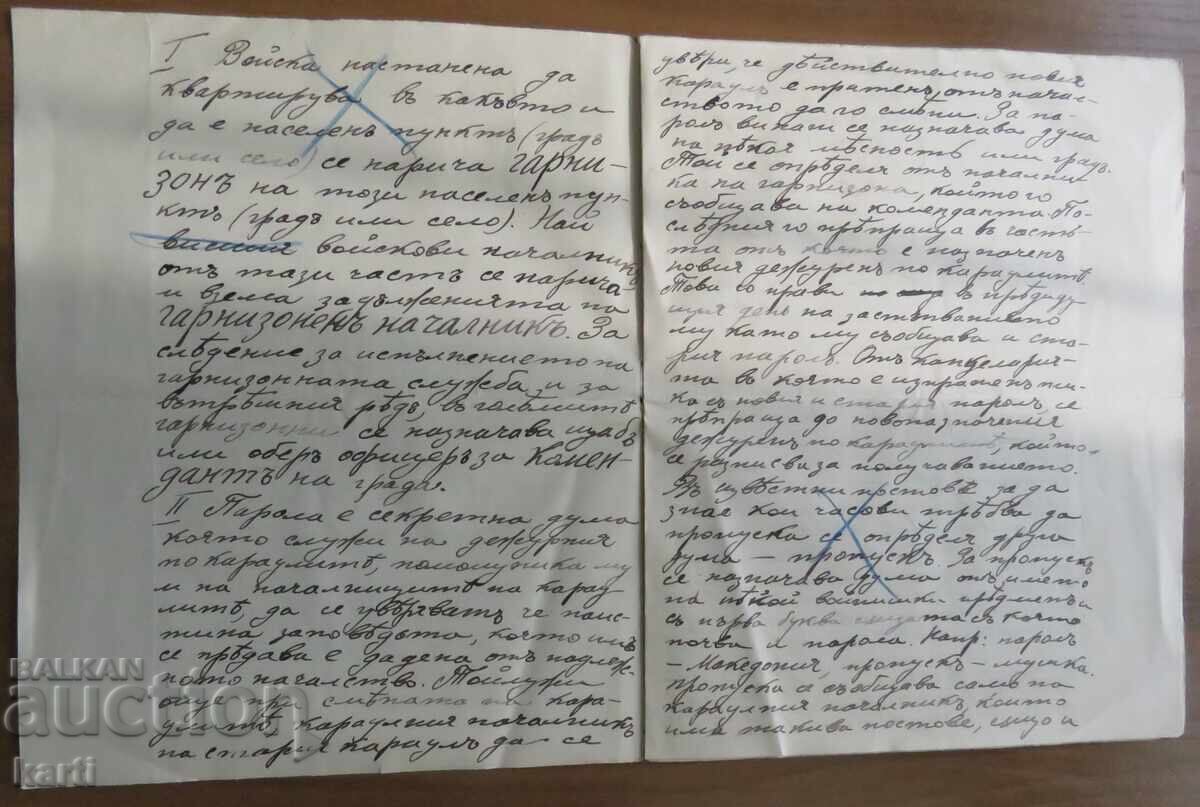 I Войска настанена да
квартирува въ какъвто и
да е населенъ пунктъ (градъ
или село) се нарича ГАРНИ-
ЗОНЪ на този населенъ пун-
ктъ (градъ или село). Най
висшия войскови началникъ
отъ тази часть се нарича
и взема задълженията на
ГАРНИЗОНЕНЪ НАЧАЛНИКЪ. За
слѣдение за испълнението на
гарнизонната служба и за
вътрѣшния рѣдъ, въ голѣмитѣ
гарнизони се назначава щабъ
или оберъ офицеръ за КОМЕН-
ДАНТЪ на града.
II Парола е секретна дума
която служи на дежурния
по караулитѣ, помощника му
и на началницитѣ на карау
литѣ, да се увѣряватъ че наис-
тина заповѣдьта, която имъ
се прѣдава е дадена отъ надлеж-
ното началство. Той служи
още при смѣната на кара-
улитѣ, караулния началникъ
на стария караулъ да се
увѣри, че дѣйствително новия
караулъ е пратенъ отъ начал-
ството да го смѣни. За па-
ролъ винаги се назначава дума
на нѣкоя мѣсность или градъ.
Той се опрѣделя отъ начални
ка на гарнизона, който го
съобщава на коменданта. По-
слѣдния го прѣпраща въ частъ-
та отъ която е назначенъ
новия дежуренъ по караулитѣ.
Това се прави въ прѣдиду
щия день на застъпванието
му като му съобщава и ста-
рия паролъ. Отъ канцелария-
та въ която е изпратенъ пли-
ка съ новия и стария паролъ, се
прѣпраща до новоназначения
дежуренъ по караулитѣ, който
се расписва за получаванието.
Въ извѣстни постове за да
знае кои часови трѣбва да
пропуска се опрѣделя друга
дума — пропускъ. За пропускъ
се назначава дума отъ името
на нѣкой войнишки прѣдметъ и
съ първа буква същата съ която
почва и парола. Напр: паролъ
— Македония, пропускъ — мушка.
пропуска се съобщава само на
караулния началникъ, които
има такива постове, също и
BALKAN
auction
karti